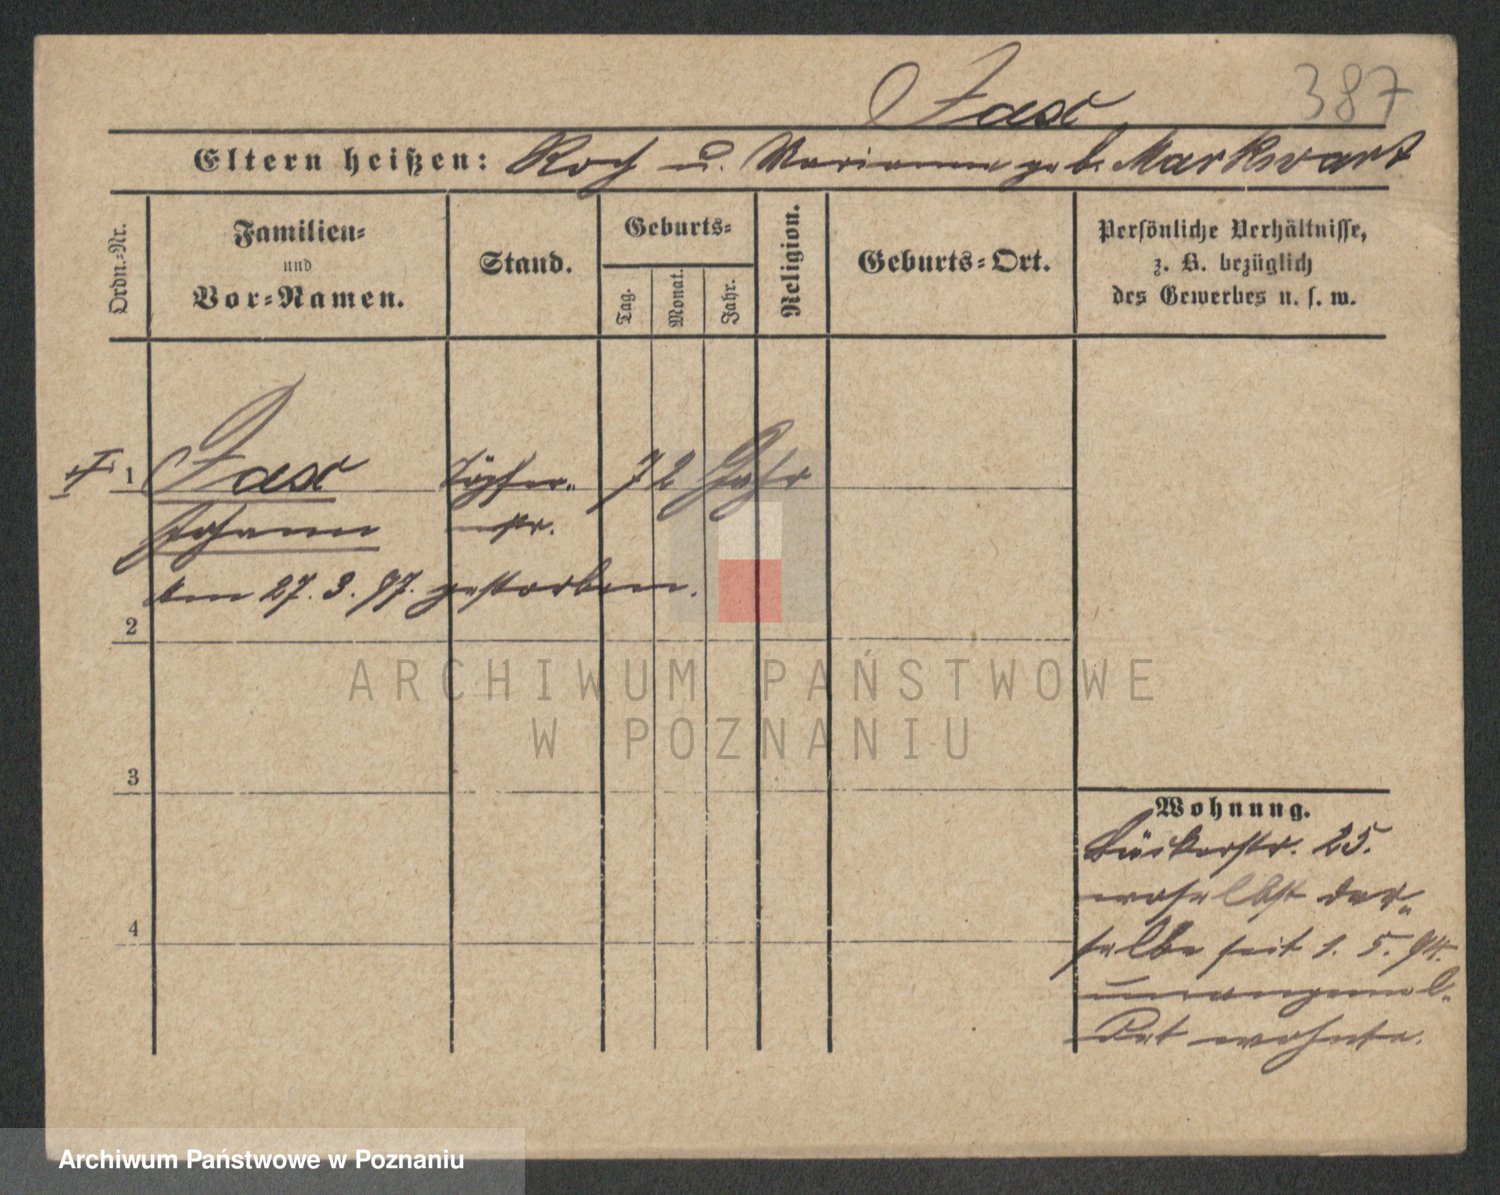 Jax
387
Eltern heißen: Roch u. Marianna geb. Markwart
Ordn.-Nr.
Familien-
und
Vor-Namen.
Stand.
Geburts-
Tag.
Monat.
Jahr.
Religion.
Geburts-Ort.
Persönliche Verhältnisse,
z. B. bezüglich
des Gewerbes u. s. w.
1 Jax Töpfer- 72 Jahr
Johann mstr.
am 27. 3. 97. gestorben.
2
3
4
Wohnung.
Bäckerstr. 25.
woselbst der-
selbe seit 1. 5. 94.
unangemel-
det wohnte.
ARCHIWUM PAŃSTWOWE
W POZNANIU
Archiwum Państwowe w Poznaniu